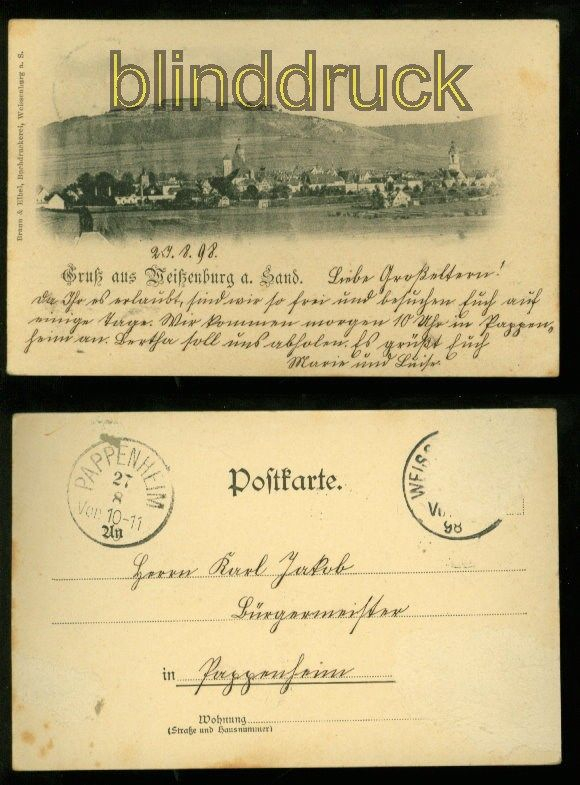 blinddruck
Braun & Elbel, Buchdruckerei, Weissenburg a. S.
8. 98.
Gruß aus Weißenburg a. Sand. Liebe Großeltern!
Da Ihr es erlaubt, sind wir so frei und besuchen Euch auf
einige Tage. Wir kommen morgen 10 Uhr in Pappen-
heim an. Bertha soll uns abholen. Es grüßt Euch
Marie und Luise.
PAPPENHEIM
27
8
Vor. 10-11
An
Postkarte.
WEISS
98
Herrn Karl Jakob
Bürgermeister
in Pappenheim
Wohnung
(Straße und Hausnummer)